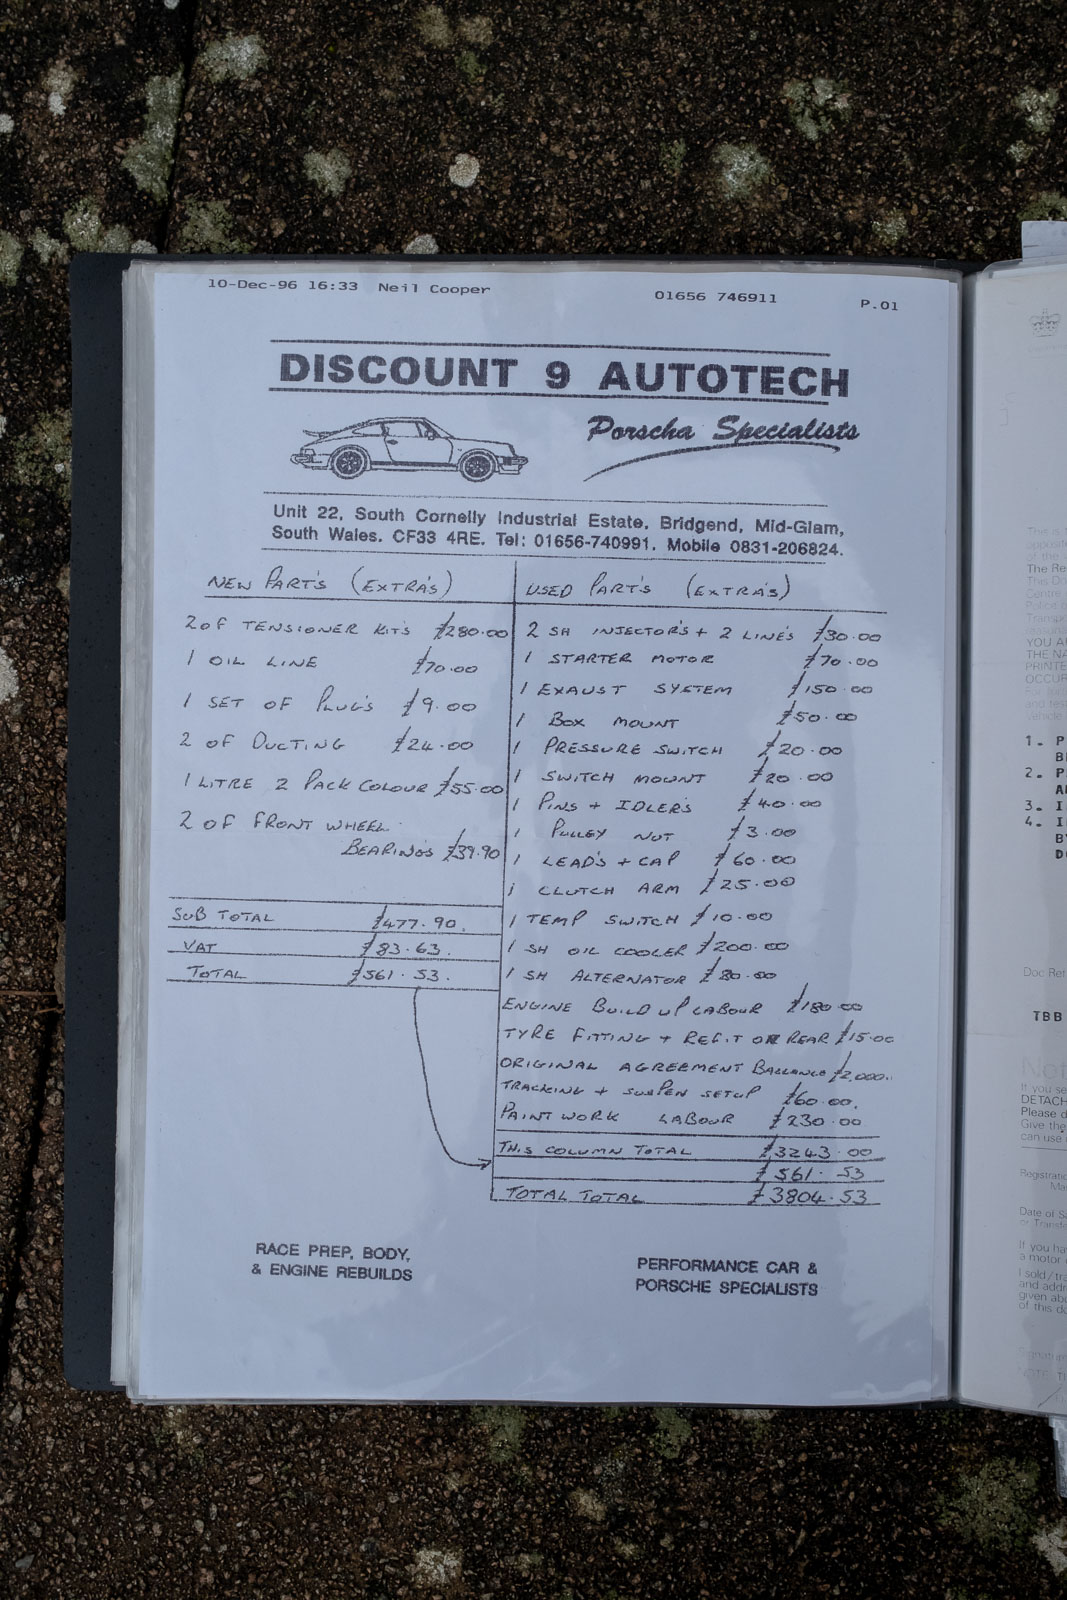 10-Dec-96 16:33 Neil Cooper 01656 746911 P.01
DISCOUNT 9 AUTOTECH
Porscha Specialists
Unit 22, South Cornelly Industrial Estate, Bridgend, Mid-Glam,
South Wales. CF33 4RE. Tel: 01656-740991. Mobile 0831-206824.
NEW PART'S (EXTRA'S)
2 OF TENSIONER KIT'S £280.00
1 OIL LINE £70.00
1 SET OF PLUG'S £9.00
2 OF DUCTING £24.00
1 LITRE 2 PACK COLOUR £55.00
2 OF FRONT WHEEL
BEARING'S £39.90
SUB TOTAL £477.90.
VAT £83.63.
TOTAL £561.53.
USED PART'S (EXTRA'S)
2 SH INJECTOR'S + 2 LINE'S £30.00
1 STARTER MOTOR £70.00
1 EXAUST SYSTEM £150.00
1 BOX MOUNT £50.00
1 PRESSURE SWITCH £20.00
1 SWITCH MOUNT £20.00
1 PINS + IDLER'S £40.00
1 PULLEY NUT £3.00
1 LEAD'S + CAP £60.00
1 CLUTCH ARM £25.00
1 TEMP SWITCH £10.00
1 SH OIL COOLER £200.00
1 SH ALTERNATOR £80.00
ENGINE BUILD UP LABOUR £180.00
TYRE FITTING + REFIT OR REAR £15.00
ORIGINAL AGREEMENT BALLANCE £2,000.
TRACKING + SUSPEN SETUP £60.00.
PAINT WORK LABOUR £230.00
THIS COLUMN TOTAL £3243.00
£561.53
TOTAL TOTAL £3804.53
RACE PREP, BODY,
& ENGINE REBUILDS
PERFORMANCE CAR &
PORSCHE SPECIALISTS
The Re
YOU A
THE NA
PRINTE
OCCUR
1. P
2. P
3. I
4. I
Doc Ref
TBB
Not
If you se
DETACH
Please d
Give the
can use
Registratio
Date of S
or Transf
If you ha
a motor
I sold/tra
and addr
given abo
of this do